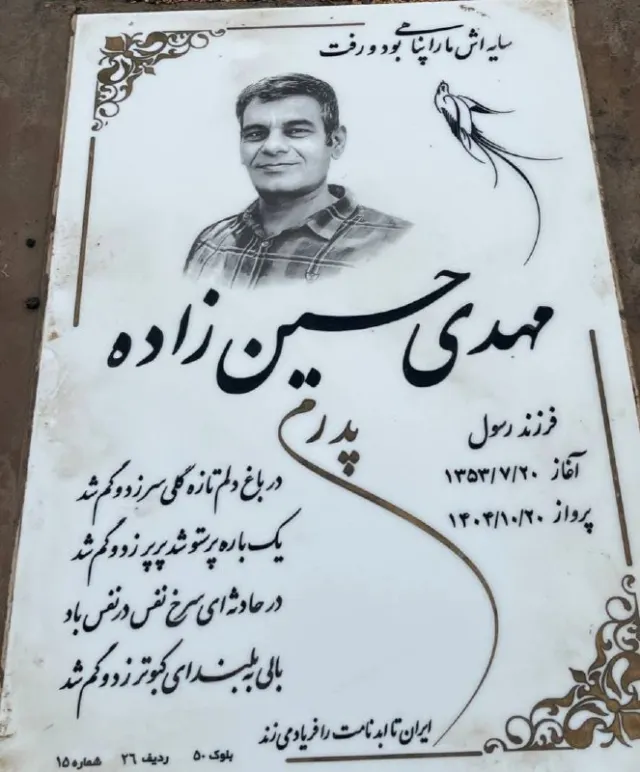 سایه اش ما را پناهی بود و رفت
مهدی حسین زاده
پدرم
فرزند رسول
آغاز ۱۳۵۳/۷/۲۰
پرواز ۱۴۰۴/۱۰/۲۰
در باغ دلم تازه گلی سر زد و گم شد
یک باره پرستو شد پرپر زد و گم شد
در حادثه ای سرخ نفس در نفس باد
بالی به بلندای کبوتر زد و گم شد
ایران تا ابد نامت را فریاد می زند
بلوک ۵۰ ردیف ۲۶ شماره ۱۵